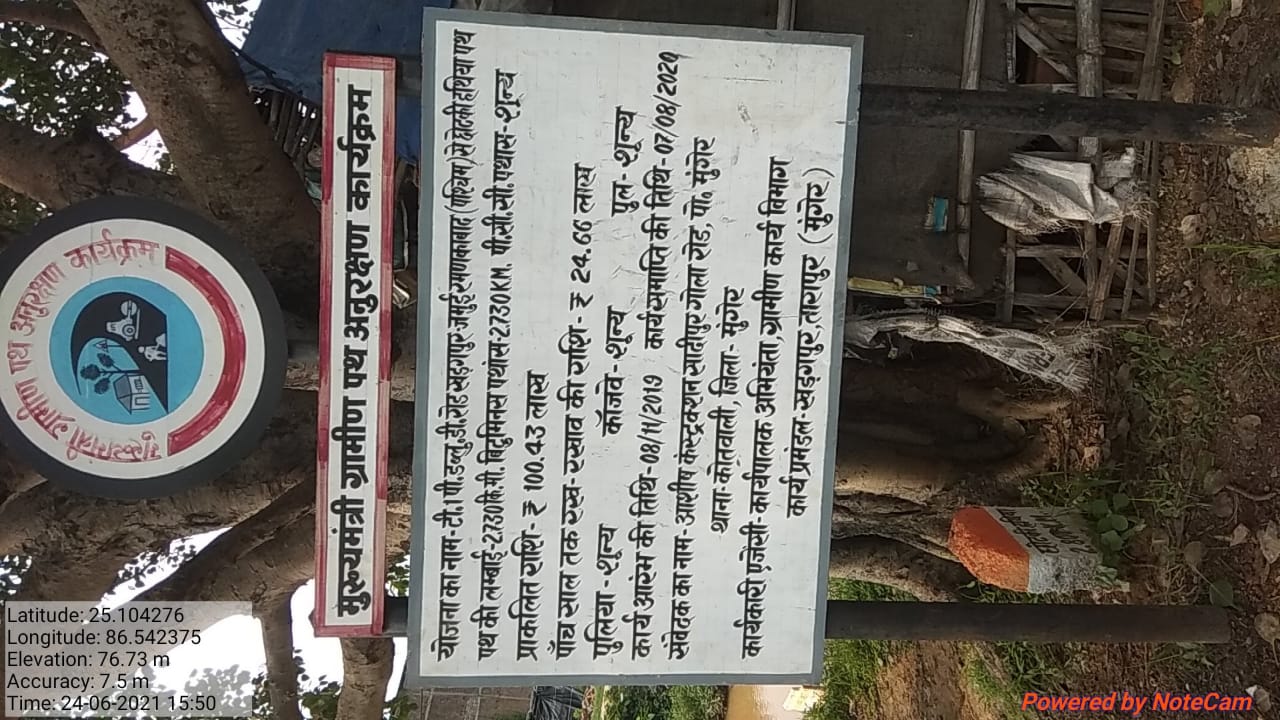 मुख्यमंत्री ग्रामीण पथ अनुरक्षण कार्यक्रम
मुख्यमंत्री ग्रामीण पथ अनुरक्षण कार्यक्रम
योजना का नाम-टी.पी.डब्लु.डी.रोड खड़गपुर जमुई रमणकाबाद (पश्चिम) से छोटकी हथिया पथ
पथ की लम्बाई-2.730कि.मी. बिटुमिनस पथांस-2.730KM. पी.सी.सी.पथांस-शून्य
प्राक्कलित राशि- ₹ 100.43 लाख
पाँच साल तक रख-रखाव की राशि- ₹ 24.66 लाख
पुलिया-शून्य कॉजवे-शून्य पुल-शून्य
कार्य आरंभ की तिथि-08/11/2019 कार्य समाप्ति की तिथि-07/08/2020
संवेदक का नाम-आशीष कंस्ट्रक्शन सादीपुर गोला रोड, पो. मुंगेर
थाना-कोतवाली, जिला-मुंगेर
कार्यकारी एजेंसी-कार्यपालक अभियंता, ग्रामीण कार्य विभाग
कार्य प्रमंडल-खड़गपुर, तारापुर (मुंगेर)
Latitude: 25.104276
Longitude: 86.542375
Elevation: 76.73 m
Accuracy: 7.5 m
Time: 24-06-2021 15:50
Powered by NoteCam